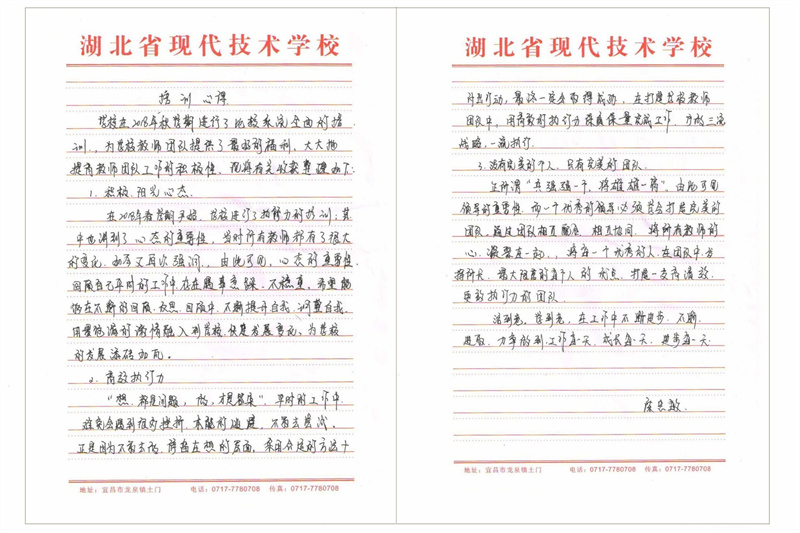 湖北省现代技术学校
培训心得
学校在2018年秋学期进行了比较系统全面的培
训，为学校教师团队提供了最好的福利，大大地
提高教师团队工作的积极性，现将有关收获整理如下：
1. 积极、阳光心态
在2018年春学期开始，学校进行了执行力的培训，其
中也讲到了心态的重要性，当时所有教师都有了很大
的变化，如今又再次强调，由此可见，心态的重要性。
回顾自己平时的工作中存在遇事急躁、不稳重，希望能
够在不断的回顾、反思、回顾中，不断提升自我，调整自我，
用最饱满的激情融入到学校快速发展变化，为学校
的发展添砖加瓦。
2. 高效执行力
“想，都是问题，做，才是答案”，平时的工作中
难免会遇到很多挫折，本能的逃避，不愿去尝试，
正是因为不愿去做，停留在想的层面，采用合适的方法+
地址：宜昌市龙泉镇土门 电话：0717-7780708 传真：0717-7780708
湖北省现代技术学校
付出行动，最终一定会取得成功，在打造学校教师
团队中，用高效的执行力保质保量完成工作，力戒三流
战略，一流执行。
3. 没有完美的个人，只有完美的团队
正所谓“兵强强一个，将雄雄一窝”，由此可见
领导的重要性，而一个优秀的领导必须学会打造完美的
团队，通过团队相互配合，相互协同，将所有教师的
心，凝聚在一起，将每一个优秀的人，在团队中，发
挥所长，增大限度的每个人的优点，打造一支高清效
更高执行力的团队。
活到老，学到老，在工作中不断进步，不断
进取，力争做到工作每一天，成长每一天，进步每一天。
地址：宜昌市龙泉镇土门 电话：0717-7780708 传真：0717-7780708